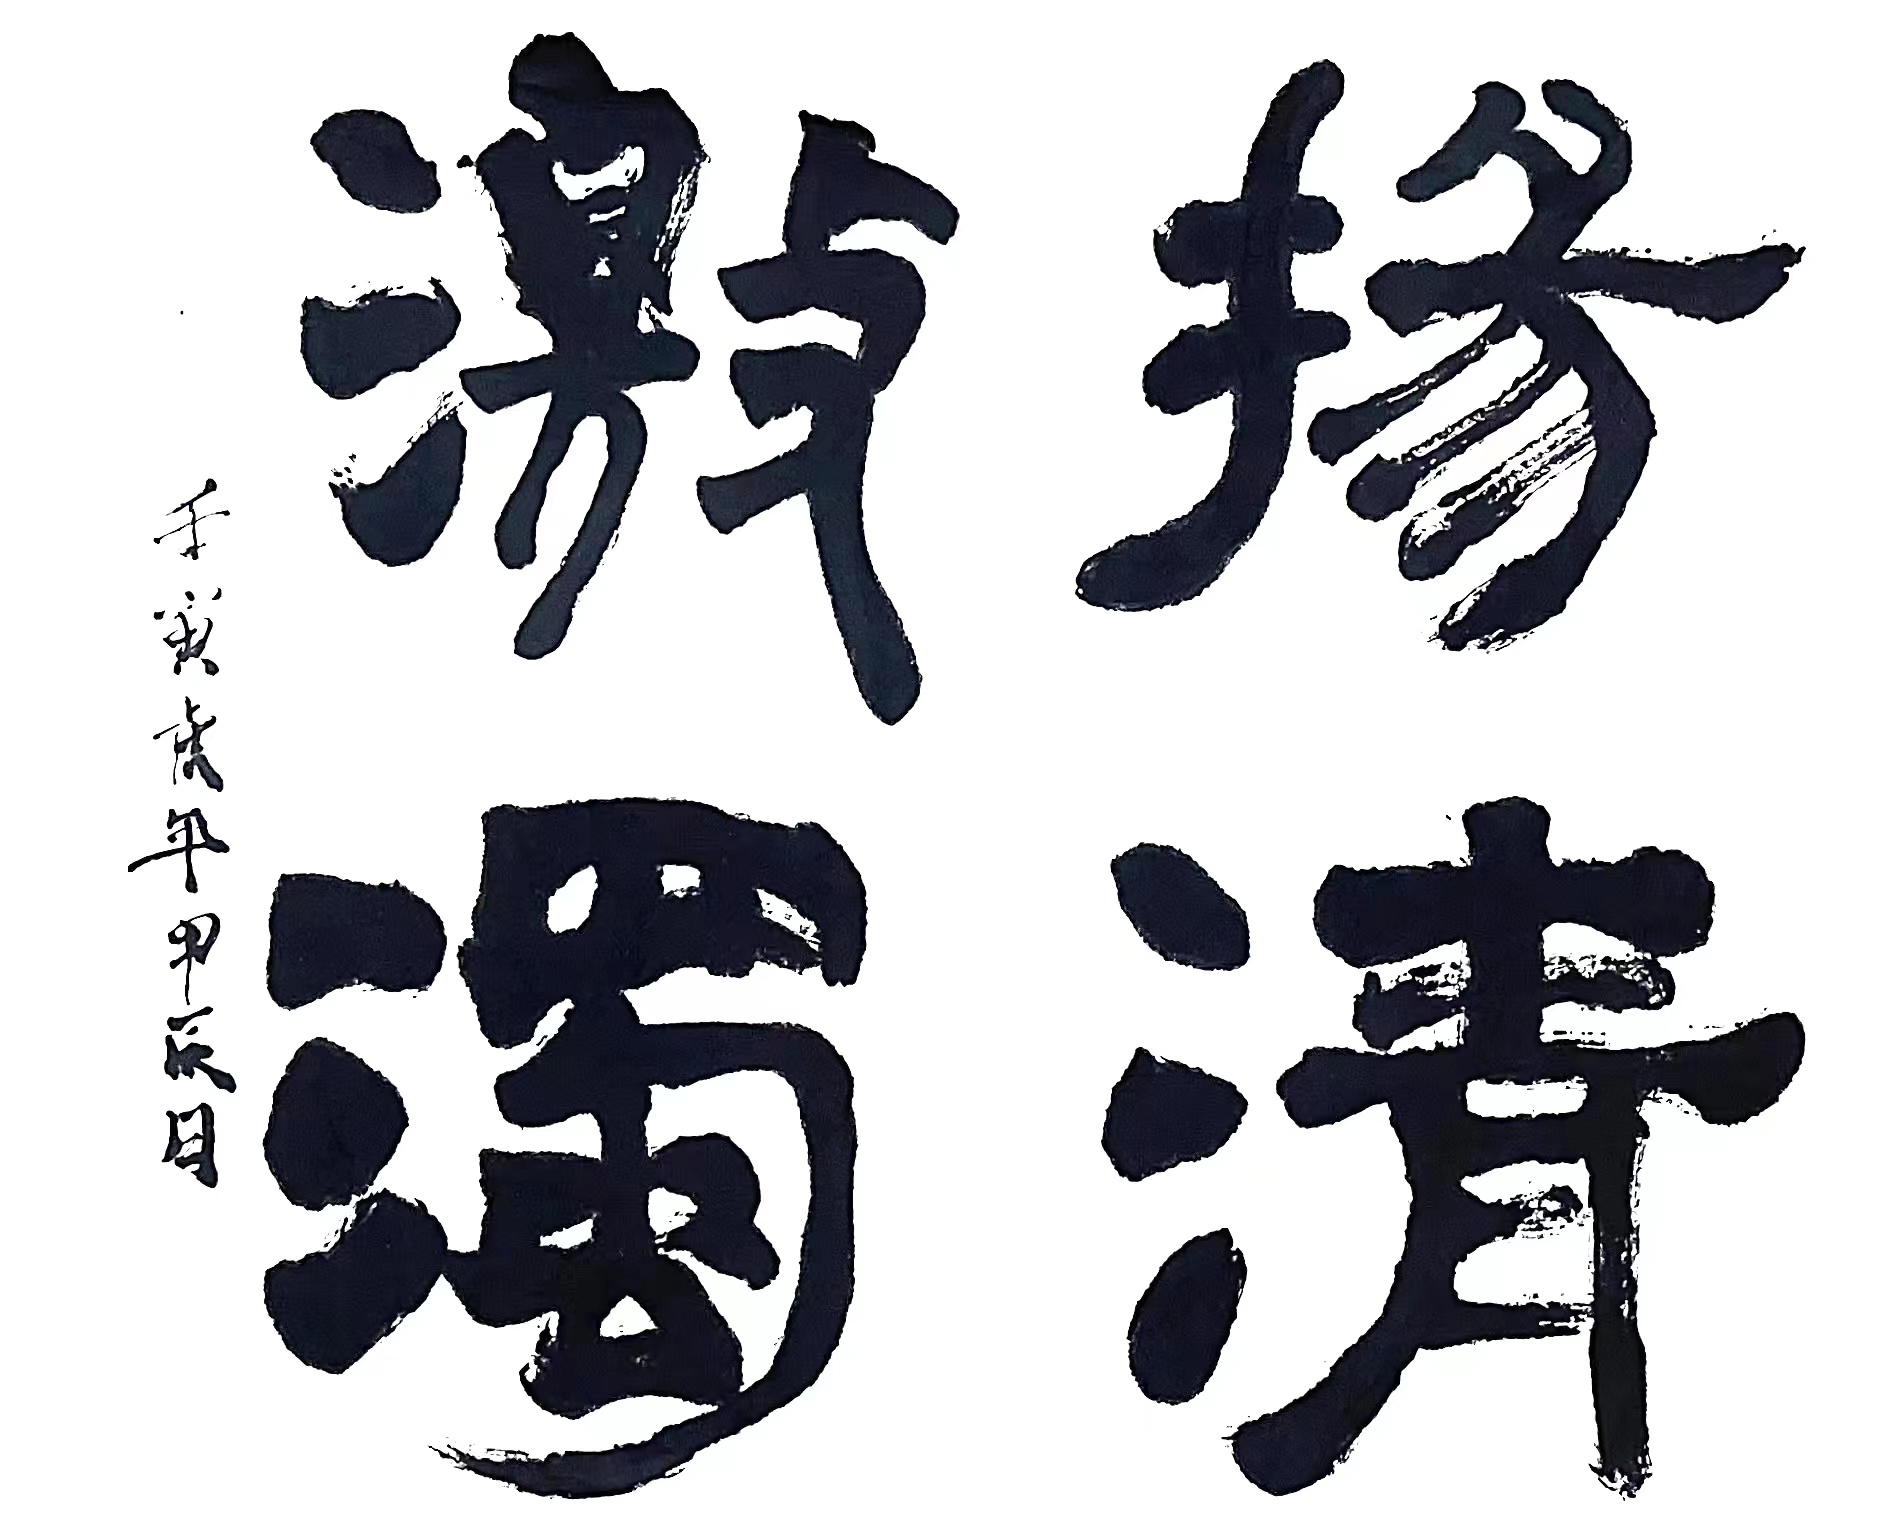 揚清
激濁
壬寅歲年甲辰日